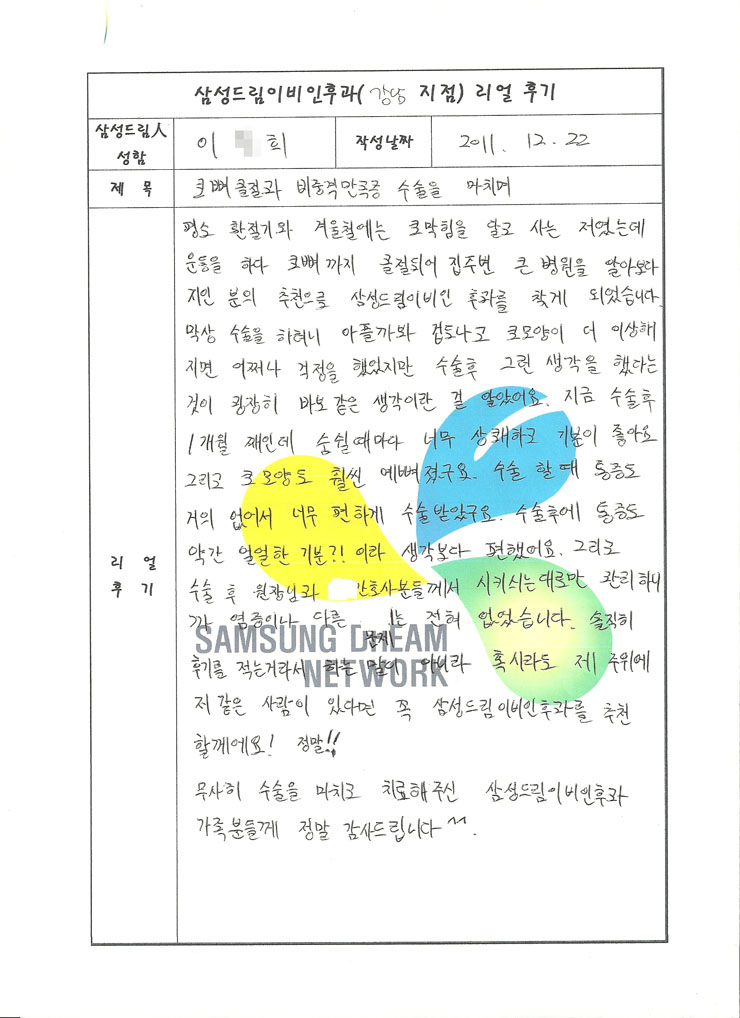 삼성드림이비인후과(강남 지점) 리얼 후기
삼성드림人
성함
이 희
작성날짜
2011. 12. 22
제 목
코뼈골절과 비중격만곡증 수술을 마치며
리 얼
후 기
평소 환절기와 겨울철에는 코막힘을 달고 사는 저였는데
운동을 하다 코뼈까지 골절되어 집주변 큰 병원을 알아보다
지인 분의 추천으로 삼성드림이비인 후과를 찾게 되었습니다.
막상 수술을 하려니 아플까봐 겁도나고 코모양이 더 이상해
지면 어쩌나 걱정을 했었지만 수술후 그런 생각을 했다는
것이 굉장히 바보같은 생각이란 걸 알았어요. 지금 수술후
1개월 째인데 숨쉴때마다 너무 상쾌하고 기분이 좋아요
그리고 코모양도 훨씬 예뻐졌구요. 수술 할때 통증도
거의 없어서 너무 편하게 수술받았구요. 수술후에 통증도
약간 얼얼한 기분?! 이라 생각보다 편했어요. 그리고
수술 후 원장님과 간호사분들께서 시키시는대로만 관리하니
까 염증이나 다른 문제는 전혀 없었습니다. 솔직히
후기를 적는거라서 하는 말이 아니라 혹시라도 제 주위에
저 같은 사람이 있다면 꼭 삼성드림이비인후과를 추천
할께에요! 정말!!
무사히 수술을 마치고 치료해주신 삼성드림이비인후과
가족분들께 정말 감사드립니다^^.
SAMSUNG DREAM
NETWORK